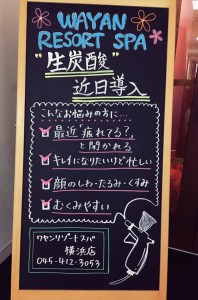 WAYAN
RESORT SPA
"生炭酸"
近日導入
こんなお悩みの方に…
最近"疲れてる?"
と聞かれる
キレイになりたいけど忙しい
顔のしわ・たるみ・くすみ
むくみやすい
ワヤンリゾートスパ
横浜店
045-412-3053